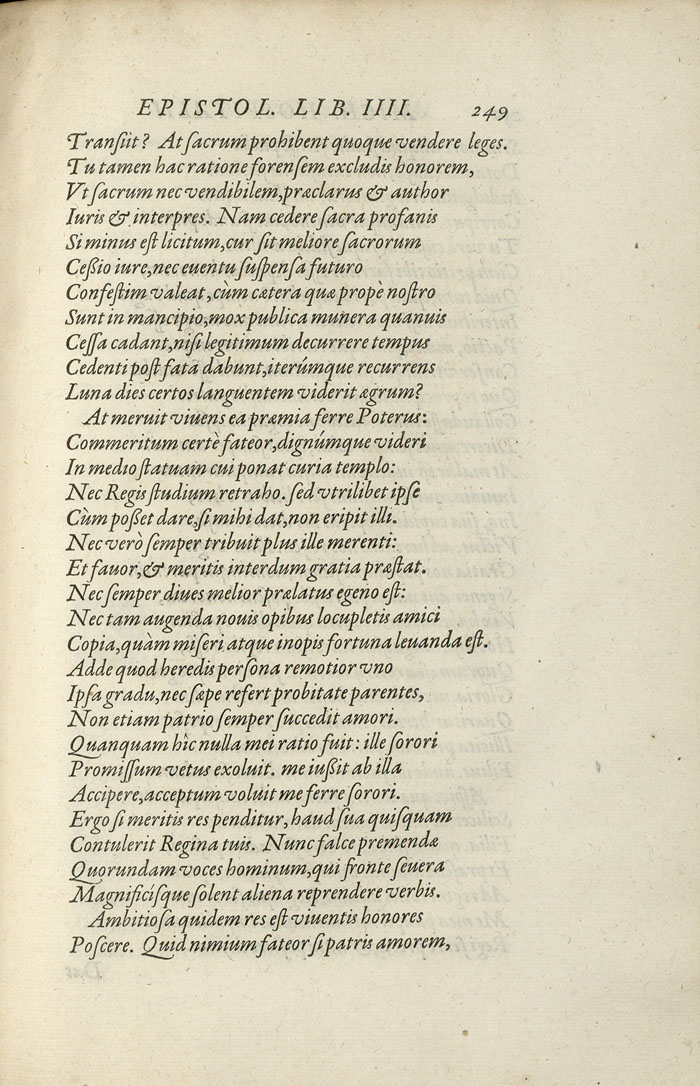 EPISTOL. LIB. IIII. 249
Tranſiit? At ſacrum prohibent quoque vendere leges.
Tu tamen hac ratione forenſem excludis honorem,
Vt ſacrum nec vendibilem, præclarus & author
Iuris & interpres. Nam cedere ſacra profanis
Si minus eſt licitum, cur ſit meliore ſacrorum
Ceßio iure, nec euentu ſuſpenſa futuro
Confeſtim valeat, cùm cætera quæ propè noſtro
Sunt in mancipio, mox publica munera quanuis
Ceſſa cadant, niſi legitimum decurrere tempus
Cedenti poſt fata dabunt, iterúmque recurrens
Luna dies certos languentem viderit ægrum?
At meruit viuens ea præmia ferre Poterus:
Commeritum certè fateor, dignúmque videri
In medio ſtatuam cui ponat curia templo:
Nec Regis ſtudium retraho. ſed vtrilibet ipſe
Cùm poßet dare, ſi mihi dat, non eripit illi.
Nec verò ſemper tribuit plus ille merenti:
Et fauor, & meritis interdum gratia præſtat.
Nec ſemper diues melior prælatus egeno eſt:
Nec tam augenda nouis opibus locupletis amici
Copia, quàm miſeri atque inopis fortuna leuanda eſt.
Adde quod heredis perſona remotior vno
Ipſa gradu, nec ſæpe refert probitate parentes,
Non etiam patrio ſemper ſuccedit amori.
Quanquam hîc nulla mei ratio fuit: ille ſorori
Promiſſum vetus exoluit. me iußit ab illa
Accipere, acceptum voluit me ferre ſorori.
Ergo ſi meritis res penditur, haud ſua quiſquam
Contulerit Regina tuis. Nunc falce premendæ
Quorundam voces hominum, qui fronte ſeuera
Magnificíſque ſolent aliena reprendere verbis.
Ambitioſa quidem res eſt viuentis honores
Poſcere. Quid nimium fateor ſi patris amorem,